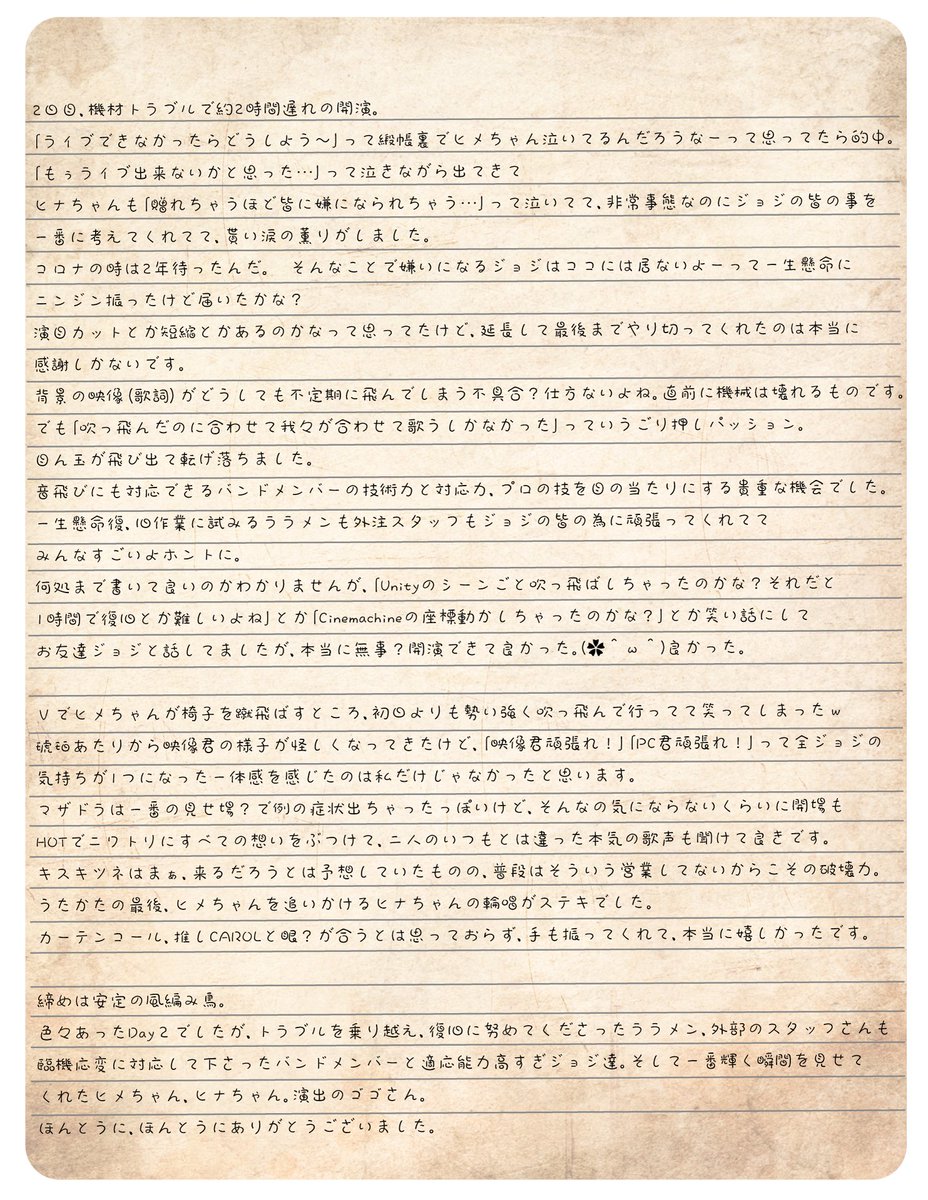 2日目、機材トラブルで約2時間遅れの開演。
「ライブできなかったらどうしよう〜」って緞帳裏でヒメちゃん泣いてるんだろうなーって思ってたら的中。
「もぅライブ出来ないかと思った…」って泣きながら出てきて
ヒナちゃんも「贈れちゃうほど皆に嫌になられちゃう…」って泣いてて、非常事態なのにジョジの皆の事を
一番に考えてくれてて、貰い涙の薫りがしました。
コロナの時は2年待ったんだ。 そんなことで嫌いになるジョジはココには居ないよーって一生懸命に
ニンジン振ったけど届いたかな？
演目カットとか短縮とかあるのかなって思ってたけど、延長して最後までやり切ってくれたのは本当に
感謝しかないです。
背景の映像(歌詞)がどうしても不定期に飛んでしまう不具合？仕方ないよね。直前に機械は壊れるものです。
でも「吹っ飛んだのに合わせて我々が合わせて歌うしかなかった」っていうごり押しパッション。
目ん玉が飛び出て転げ落ちました。
音飛びにも対応できるバンドメンバーの技術力と対応力、プロの技を目の当たりにする貴重な機会でした。
一生懸命復、旧作業に試みるううメンも外注スタッフもジョジの皆の為に頑張ってくれてて
みんなすごいよホントに。
何処まで書いて良いのかわかりませんが、「Unityのシーンごと吹っ飛ばしちゃったのかな？それだと
1時間で復旧とか難しいよね」とか「Cinemachineの座標動かしちゃったのかな？」とか笑い話にして
お友達ジョジと話してましたが、本当に無事？開演できて良かった。(✿＾ω＾)良かった。
Ｖでヒメちゃんが椅子を蹴飛ばすところ、初日よりも勢い強く吹っ飛んで行ってて笑ってしまったｗ
琥珀あたりから映像君の様子が怪しくなってきたけど、「映像君頑張れ！」「PC君頑張れ！」って全ジョジの
気持ちが1つになった一体感を感じたのは私だけじゃなかったと思います。
マザドラは一番の見せ場？で例の症状出ちゃったっぽいけど、そんなの気にならないくらいに開場も
HOTでニワトリにすべての想いをぶつけて、二人のいつもとは違った本気の歌声も聞けて良きです。
キスキツネはまぁ、来るだろうとは予想していたものの、普段はそういう営業してないからこその破壊力。
うたかたの最後、ヒメちゃんを追いかけるヒナちゃんの輪唱がステキでした。
カーテンコール、推しCAROLと眼？が合うとは思っておらず、手も振ってくれて、本当に嬉しかったです。
締めは安定の風編み鳥。
色々あったDay２でしたが、トラブルを乗り越え、復旧に努めてくださったううメン、外部のスタッフさんも
臨機応変に対応して下さったバンドメンバーと適応能力高すぎジョジ達。そして一番輝く瞬間を見せて
くれたヒメちゃん、ヒナちゃん。演出のゴゴさん。
ほんとうに、ほんとうにありがとうございました。